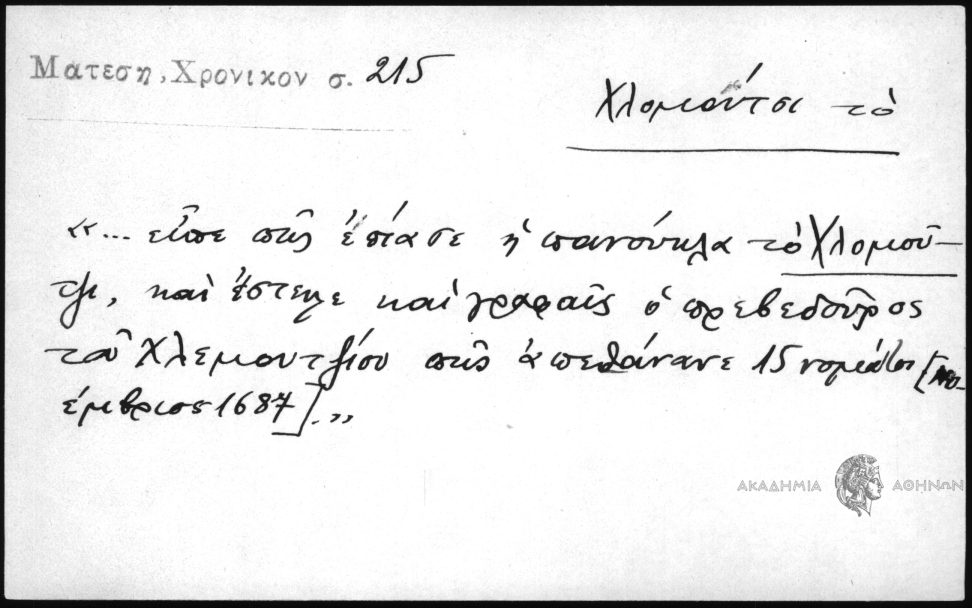 Ματεση, Χρονικον σ. 215
Χλομούτσι τὸ
«... εἶπε πῶς ἔπιασε ἡ πανούκλα τὸ Χλομοῦ-
τζι, καὶ ἔστειλε καὶ γραφαῖς ὁ πρεβεδοῦρος
τοῦ Χλεμουτζίου πῶς ἀπεθάνανε 15 νομάτοι [Νο-
έμβριος 1687].»
ΑΚΑΔΗΜΙΑ ΑΘΗΝΩΝ